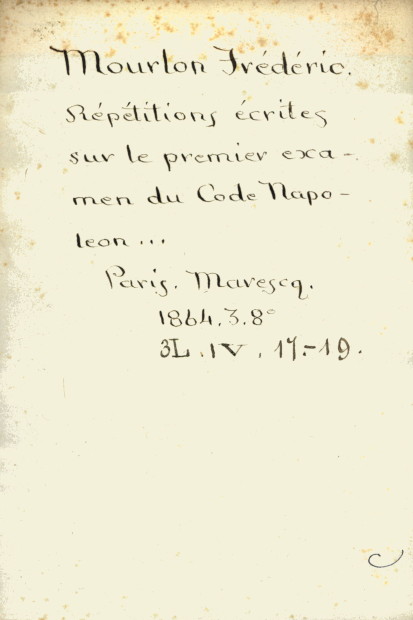 Mourlon Frédéric.
Répétitions écrites
sur le premier exa-
men du Code Napo-
leon ...
Paris. Marescq.
1864.3.8º
3L.IV.17.-19.